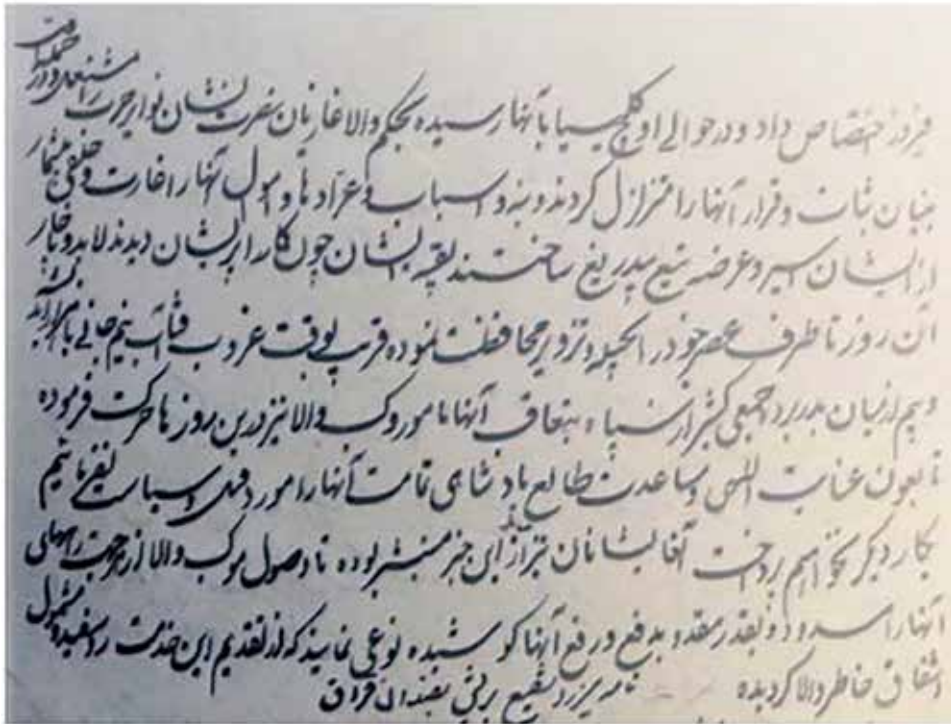 فیروز اختصاص داد و در حوالی اوچ کلیسیا بآنها رسیده بحکم والا غازیان نصرت نشان نوایر حرب را مشتعل و در
بنیان ثبات و قرار آنها را متزلزل کردند و بنه و اسباب و عرّادها و اموال آنها را غارت و خلقی بیشمار
از ایشان اسیر و عرضه تیغ بیدریغ ساختند بقیه ایشان چون کار را پریشان دیدند لابد و ناچار
آن روز تا طرف عصر خود را بحیله و تزویر محافظت نموده قریب بوقت غروب آفتاب نیم جانی با
و بیم از میان بدر برد جمعی کثیر از سپاه بتعاقب آنها مامور و موکب والا نیز درین روزها حرکت فرموده
تا بعون عنایت الهی و مساعدت طالع پادشاهی تمامت آنها را مورد قتل و سیاست نفرمائیم
بکار دیگر نخواهیم پرداخت آن عالیشانان نیز از این خبر مستبشر بوده تا وصول موکب والا از هر جهت راههای
آنها را مسدود و بقدر مقدور بدفع و رفع آنها کوشیده نوعی نمایند که از تقدیم این خدمت رو سفید و مشمول
اشفاق خاطر والا گردیده